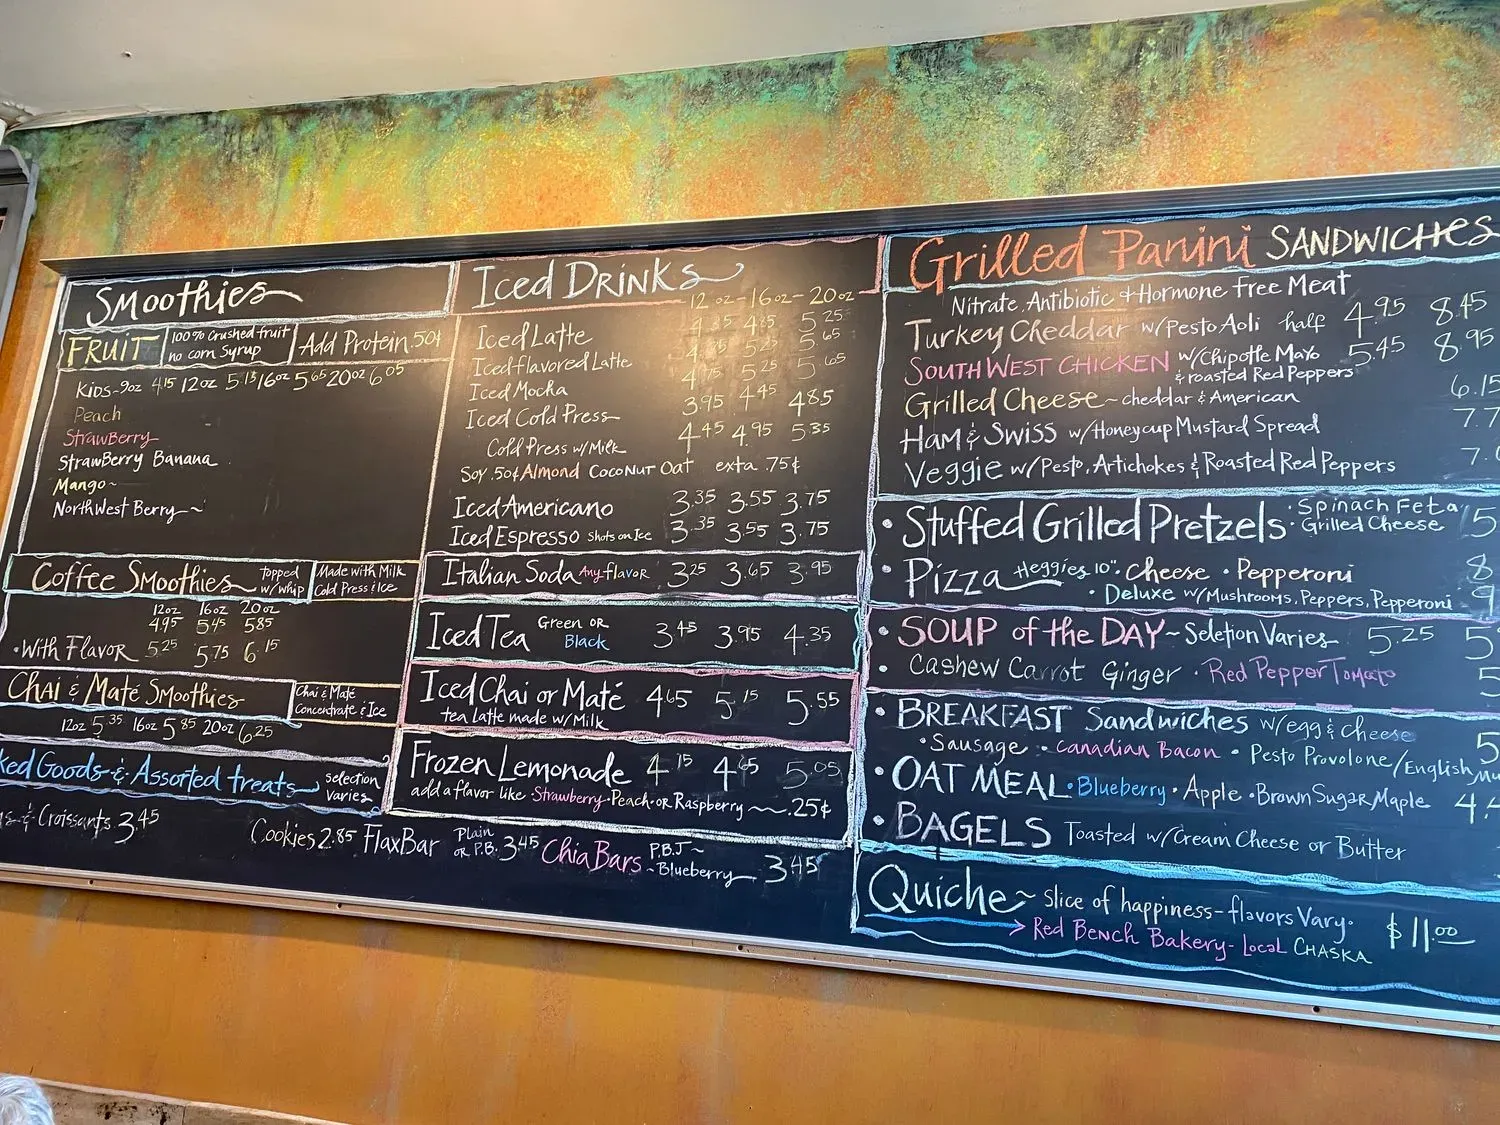 Smoothies
FRUIT
100% Crushed fruit
no corn Syrup
Add Protein .50¢
Kids-9oz 4.15 12oz 5.15 16oz 5.65 20oz 6.05
Peach
StrawBerry
StrawBerry Banana
Mango~
NorthWest Berry~
Coffee Smoothies
topped
w/whip
Made with Milk
Cold Press & Ice
12oz 16oz 20oz
4.95 5.45 5.85
•With Flavor 5.25 5.75 6.15
Chai & Maté Smoothies
Chai & Maté
Concentrate & Ice
12oz 5.35 16oz 5.85 20oz 6.25
ked Goods & Assorted treats
selection
varies
& Croissants 3.45
Cookies 2.85 FlaxBar Plain or P.B. 3.45 Chia Bars P.B.J~ ~Blueberry 3.45
Iced Drinks
12 oz - 16oz - 20oz
Iced Latte 5.25
Iced flavored Latte 5.65
Iced Mocha 4.75 5.25 5.65
Iced Cold Press 3.95 4.45 4.85
Cold Press w/Milk 4.45 4.95 5.35
Soy .50¢ Almond Coconut Oat exta .75¢
Iced Americano 3.35 3.55 3.75
Iced Espresso Shots on Ice 3.35 3.55 3.75
Italian Soda Any flavor 3.25 3.65 3.95
Iced Tea Green or Black 3.45 3.95 4.35
Iced Chai or Maté 4.65 5.15 5.55
tea latte made w/Milk
Frozen Lemonade 4.15 4.65 5.05
add a flavor like Strawberry•Peach•or Raspberry~ .25¢
Grilled Panini SANDWICHES
Nitrate, Antibiotic & Hormone free Meat
Turkey Cheddar w/Pesto Aoli half 4.95 8.45
SOUTHWEST CHICKEN w/Chipotle Mayo & roasted Red Peppers 5.45 8.95
Grilled Cheese~cheddar & American 6.15
Ham & Swiss w/Honeycup Mustard Spread 7.7
Veggie w/Pesto, Artichokes & Roasted Red Peppers 7.
• Stuffed Grilled Pretzels • Spinach Feta 5
• Grilled Cheese
• Pizza Heggies 10" • Cheese • Pepperoni 8
• Deluxe w/Mushrooms, Peppers, Pepperoni 9
• SOUP of the DAY~Seletion Varies 5.25 5
• Cashew Carrot Ginger • Red Pepper Tomato 5
• BREAKFAST Sandwiches w/egg & cheese 5
• Sausage • Canadian Bacon • Pesto Provolone/English Mu
• OAT MEAL • Blueberry • Apple • Brown Sugar Maple 4.
• BAGELS Toasted w/Cream Cheese or Butter
Quiche~ Slice of happiness-flavors Vary• $11.00
Red Bench Bakery-Local CHASKA